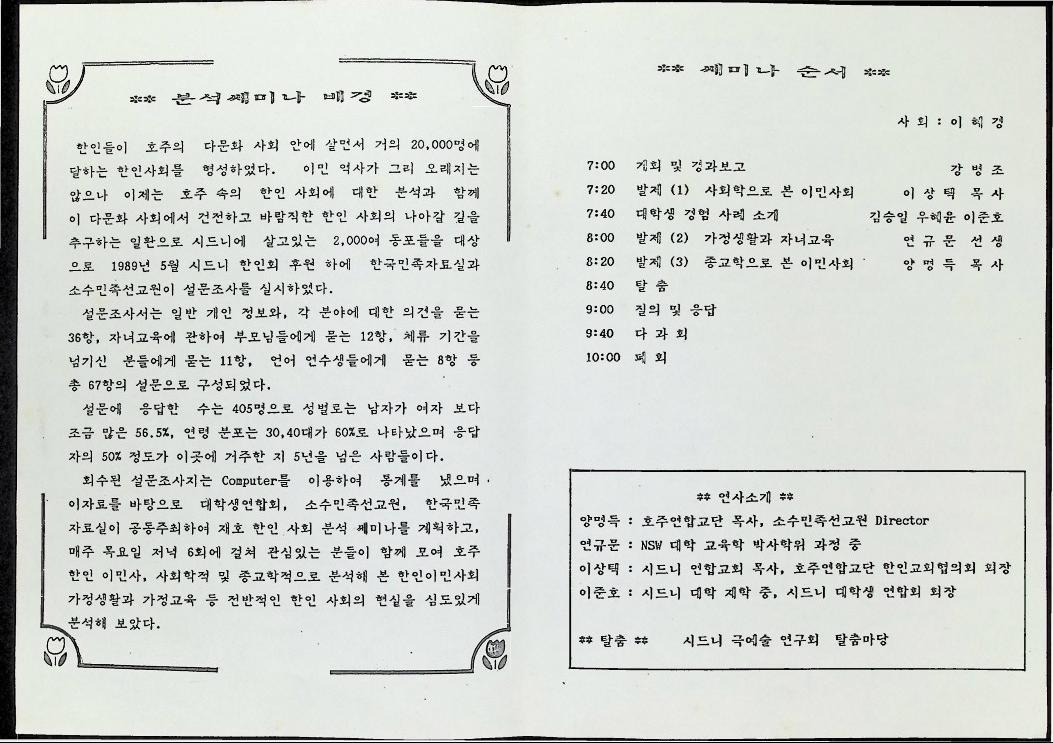 ** 분석쎄미나 배경 **
한인들이 호주의 다문화 사회 안에 살면서 거의 20,000명에
달하는 한인사회를 형성하였다. 이민 역사가 그리 오래지는
않으나 이제는 호주 속의 한인 사회에 대한 분석과 함께
이 다문화 사회에서 건전하고 바람직한 한인 사회의 나아갈 길을
추구하는 일환으로 시드니에 살고있는 2,000여 동포들을 대상
으로 1989년 5월 시드니 한인회 후원 하에 한국민족자료실과
소수민족선교원이 설문조사를 실시하였다.
설문조사서는 일반 개인 정보와, 각 분야에 대한 의견을 묻는
36항, 자녀교육에 관하여 부모님들에게 묻는 12항, 체류 기간을
넘기신 분들에게 묻는 11항, 언어 연수생들에게 묻는 8항 등
총 67항의 설문으로 구성되었다.
설문에 응답한 수는 405명으로 성별로는 남자가 여자 보다
조금 많은 56.5%, 연령 분포는 30,40대가 60%로 나타났으며 응답
자의 50% 정도가 이곳에 거주한 지 5년을 넘은 사람들이다.
회수된 설문조사지는 Computer를 이용하여 통계를 냈으며
이자료를 바탕으로 대학생연합회, 소수민족선교원, 한국민족
자료실이 공동주최하여 재호 한인 사회 분석 쎄미나를 계획하고,
매주 목요일 저녁 6회에 걸쳐 관심있는 분들이 함께 모여 호주
한인 이민사, 사회학적 및 종교학적으로 분석해 본 한인이민사회
가정생활과 가정교육 등 전반적인 한인 사회의 현실을 심도있게
분석해 보았다.
** 쎄미나 순서 **
사회 : 이혜경
7:00 개회 및 경과보고 강 병 조
7:20 발제 (1) 사회학으로 본 이민사회 이 상 택 목 사
7:40 대학생 경험 사례 소개 김승일 우혜윤 이준호
8:00 발제 (2) 가정생활과 자녀교육 연 규 문 선 생
8:20 발제 (3) 종교학으로 본 이민사회 양 명 득 목 사
8:40 탈 춤
9:00 질의 및 응답
9:40 다 과 회
10:00 폐 회
** 연사소개 **
양명득 : 호주연합교단 목사, 소수민족선교원 Director
연규문 : NSW 대학 교육학 박사학위 과정 중
이상택 : 시드니 연합교회 목사, 호주연합교단 한인교회협의회 회장
이준호 : 시드니 대학 재학 중, 시드니 대학생 연합회 회장
** 탈춤 ** 시드니 극예술 연구회 탈춤마당